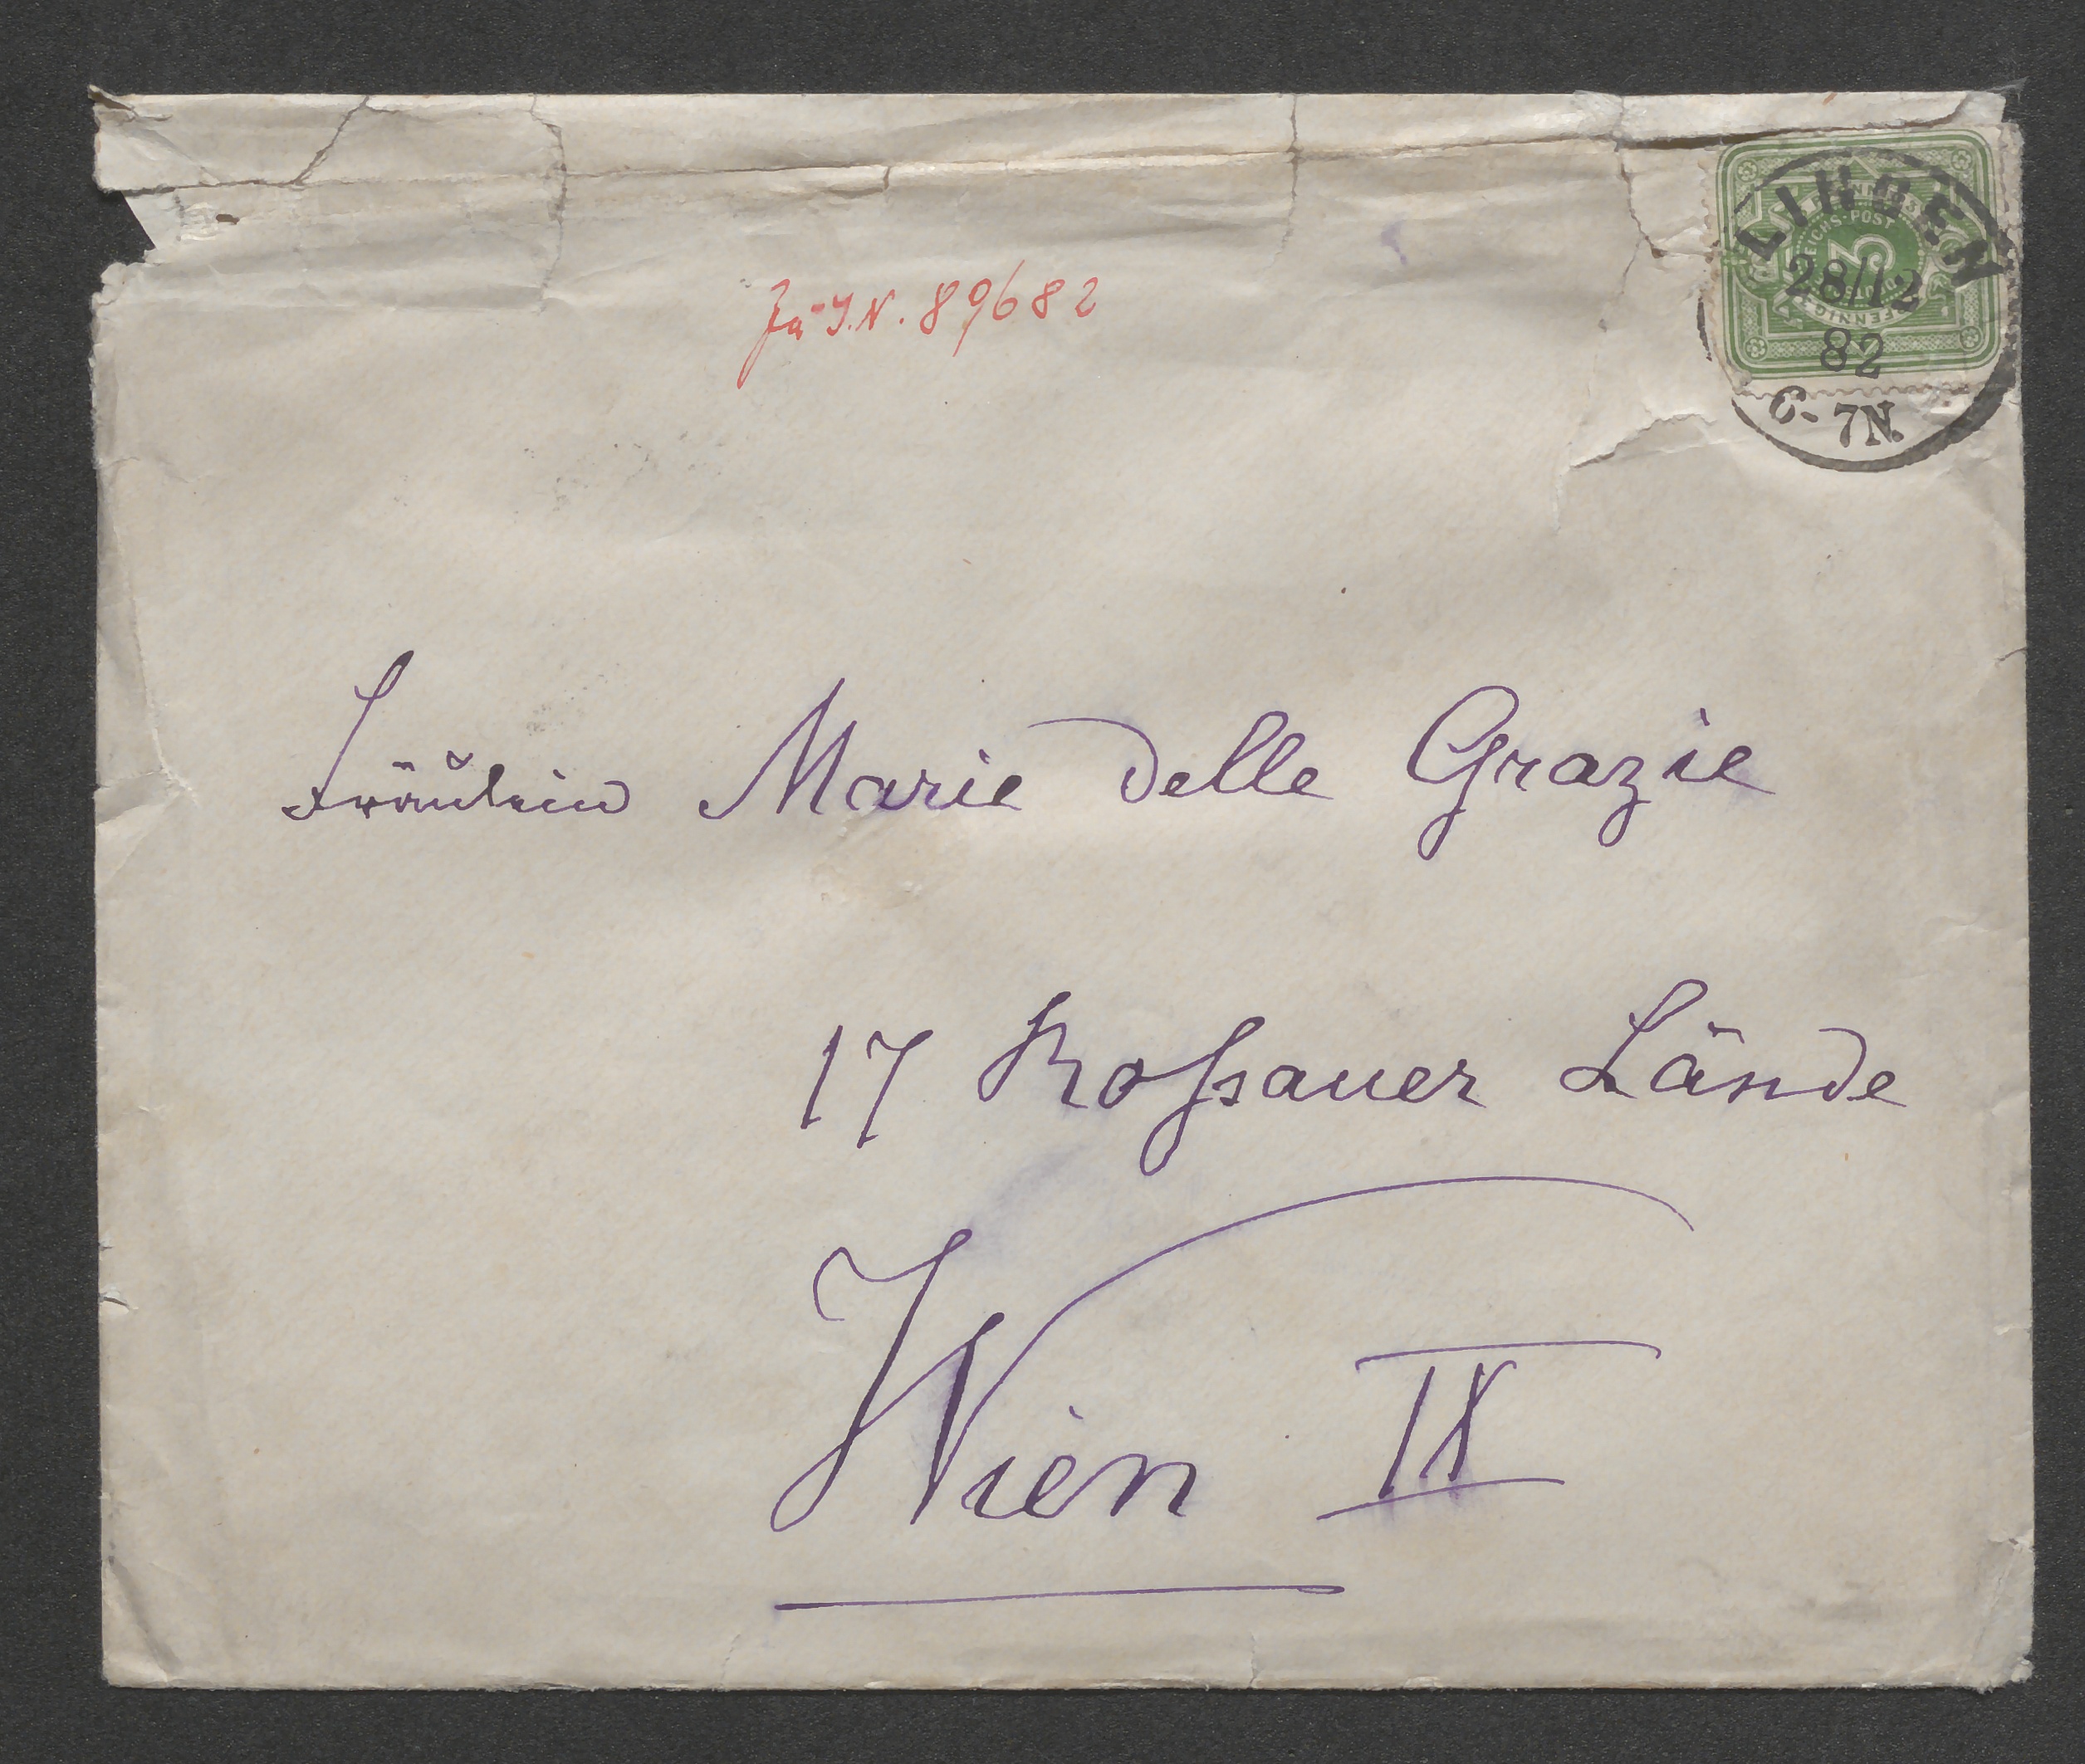 Zu I.N. 89682
REICHS-POST
3
PFENNIG
28/12
82
6-7N.
Fräulein Marie delle Grazie
17 Roßauer Lände
Wien IX